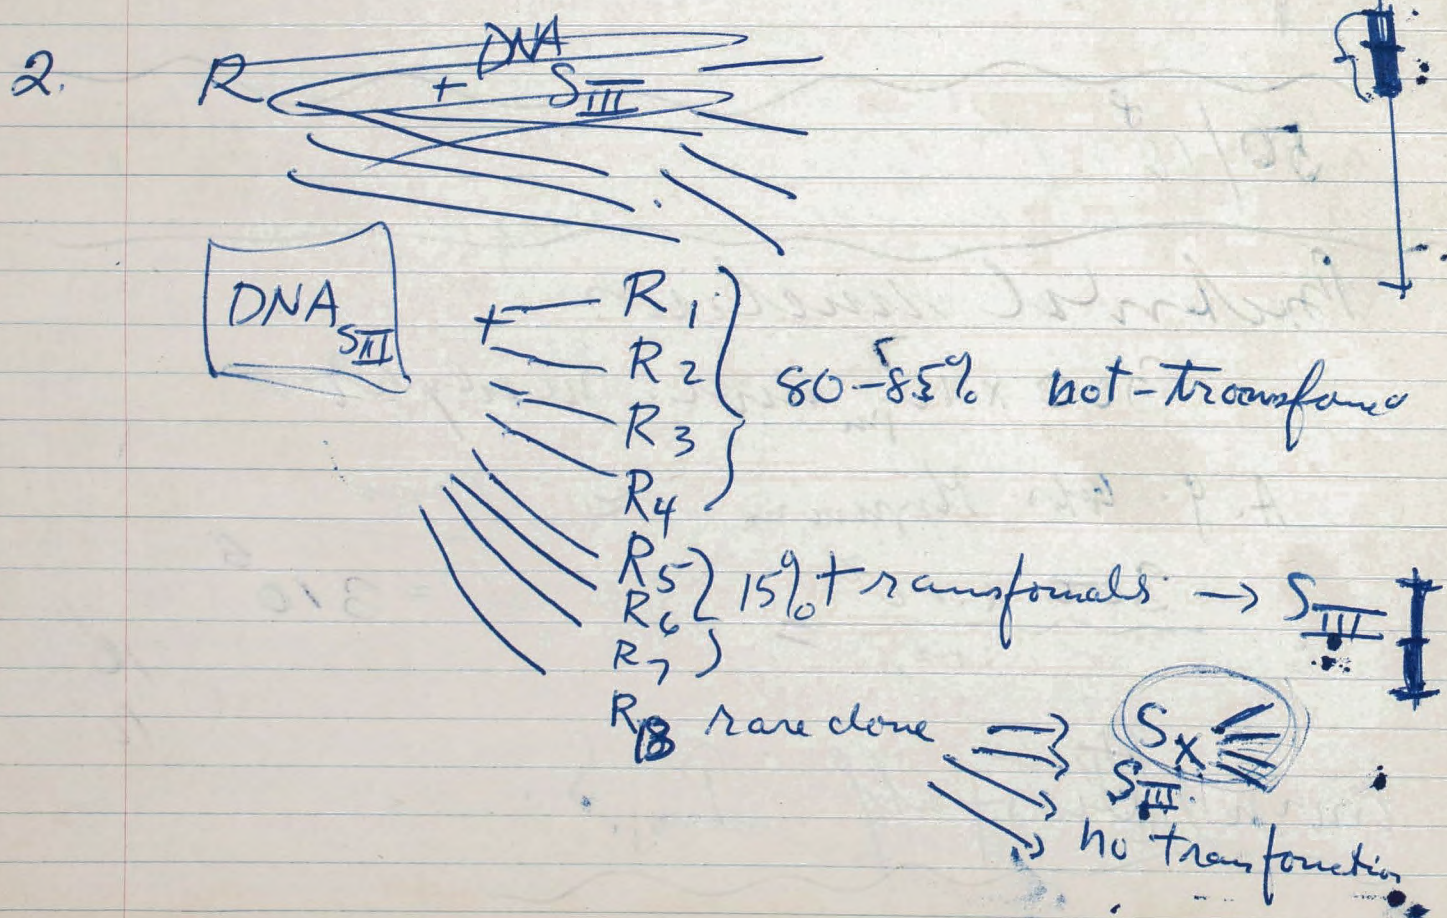 2. R + DNA S III
DNA SIII + R1
R2
R3
R4
80-85% not-transfomd
R5
R6
R7
15% transfomals → SIII
R8 rare clone → Sx
SIII
no transformation